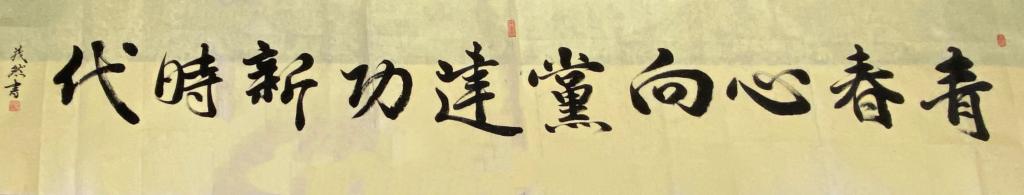 青春心向黨建功新時代
茂然書